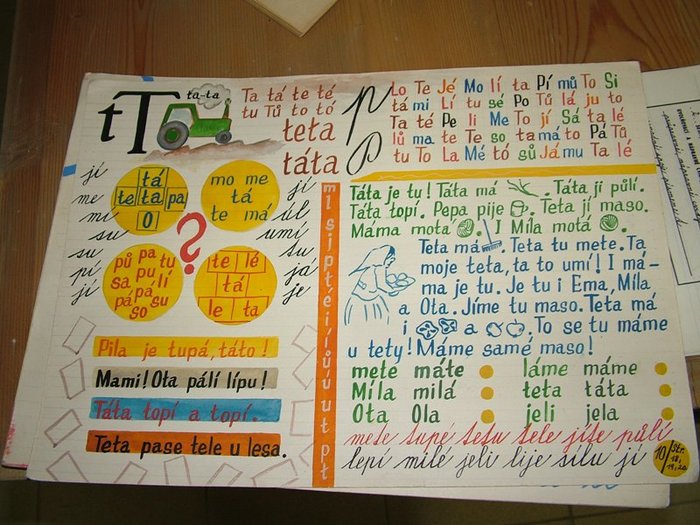 t T
ta-ta
Ta tá te té
tu Tů to tó
teta
táta
p
Lo Te Jé Mo lí ta Pí mů To Si
tá mi Lí tu sé Po Tů lá ju to
Ta té Pe li Me To jí Sá ta lé
lů ma te Te so ta má to Pá Tů
tu To La Mé tó sů Já mu Ta lé
jí
me
mi
su
su
pí
jí
tá
te ta pa
O
mo me
tá
te má
jí
úl
umí
tu
já
je
?
pů pa tu
sa pu
pá pá lí
so su
te lé
tá
le ta
m l s j p t é i í ů ú u t p t
Pila je tupá, táto!
Mami! Ota pálí lípu!
Táta topí a topí.
Teta pase tele u lesa.
Táta je tu! Táta má . Táta jí půlí.
Táta topí. Pepa pije . Teta jí maso.
Máma motá . I Míla motá .
Teta má . Teta tu mete. Ta
moje teta, ta to umí! I má-
ma je tu. Je tu i Ema, Míla
a Ota. Jíme tu maso. Teta má
i a . To se tu máme
u tety! Máme samé maso!
mete máte láme máme
Míla milá teta táta
Ota Ola jeli jela
mete tupé tetu tele jíte půlí
lepí milé jeli lije sílu jí
10/ str. 18, 19, 20